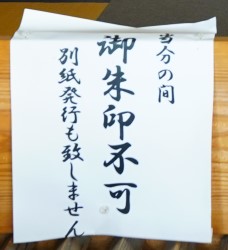 当分の間
御朱印不可
別紙発行も致しません